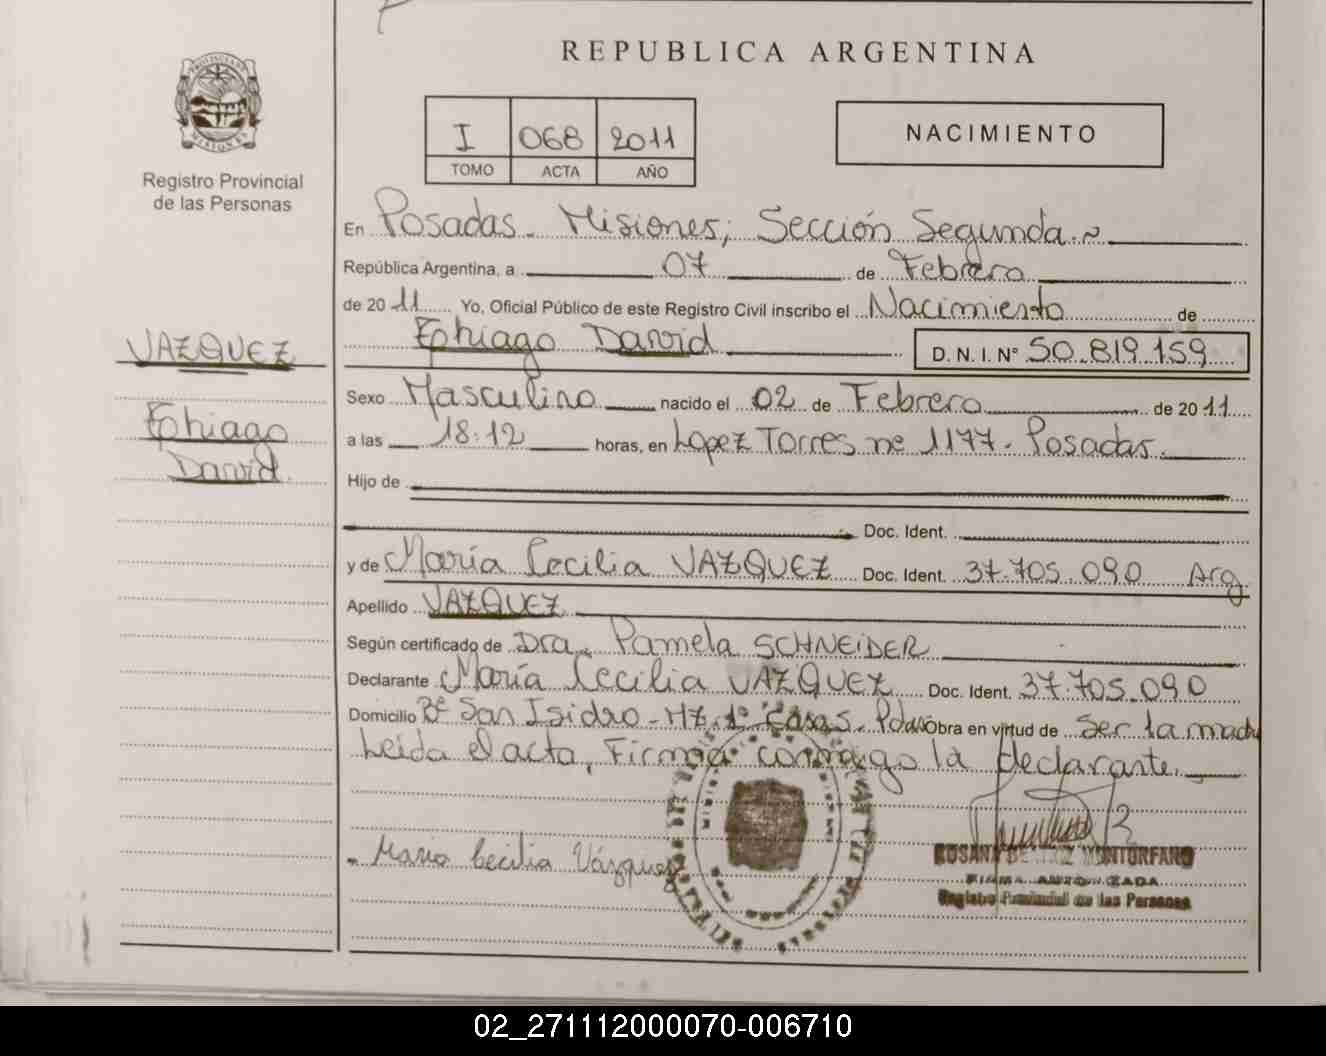 REPUBLICA ARGENTINA
I 068 2011
TOMO ACTA AÑO
NACIMIENTO
Registro Provincial
de las Personas
En Posadas - Misiones; Sección Segunda.~
República Argentina, a 07 de Febrero
de 2011 Yo, Oficial Público de este Registro Civil inscribo el Nacimiento de
Thiago David D. N. I. Nº 50.819.159
VAZQUEZ
Thiago
David
Sexo Masculino nacido el 02 de Febrero de 2011
a las 18:12 horas, en Lopez Torres nº 1177 - Posadas.
Hijo de
Doc. Ident.
y de María Cecilia VAZQUEZ Doc. Ident. 37.705.090 Arg
Apellido VAZQUEZ
Según certificado de Dra. Pamela SCHNEIDER
Declarante María Cecilia VAZQUEZ Doc. Ident. 37.705.090
Domicilio Bº San Isidro - Mz. Casas - Pdas Obra en virtud de ser la madre
Leída el acta, Firma conmigo la declarante.
María Cecilia Vázquez
ROSANA BEATRIZ MONTORFANO
FIRMA AUTORIZADA
Registro Provincial de las Personas
02_271112000070-006710